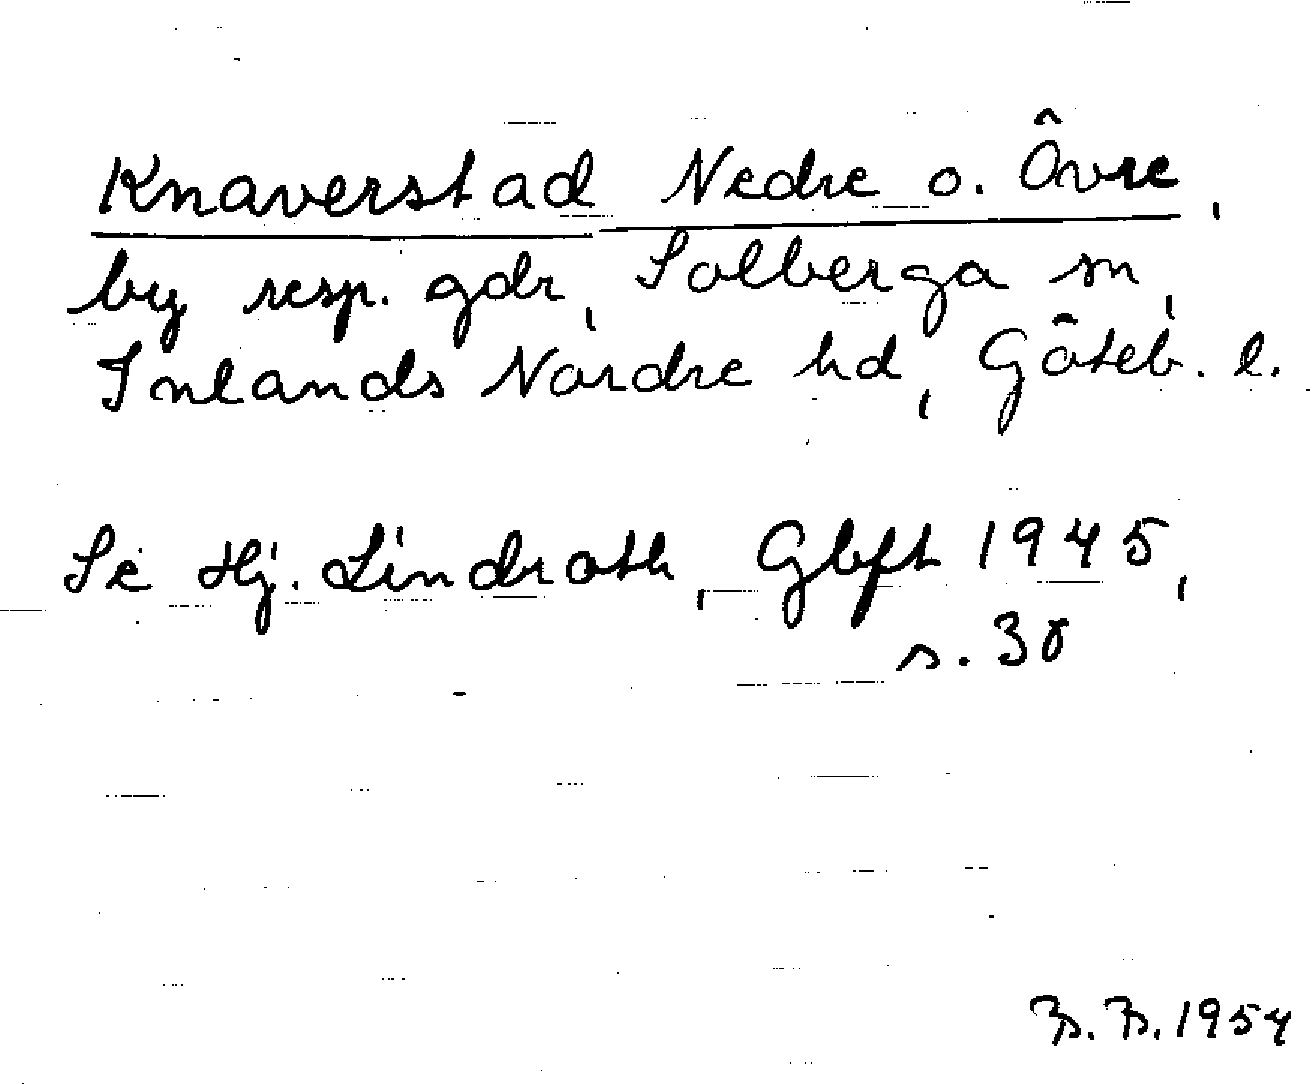 Knaverstad Nedre o. Övre,
by resp. gdr, Solberga sn,
Inlands Nordre hd, Göteb. l.
Se Hj. Lindroth, Gbft 1945,
s. 38
B. B. 1954